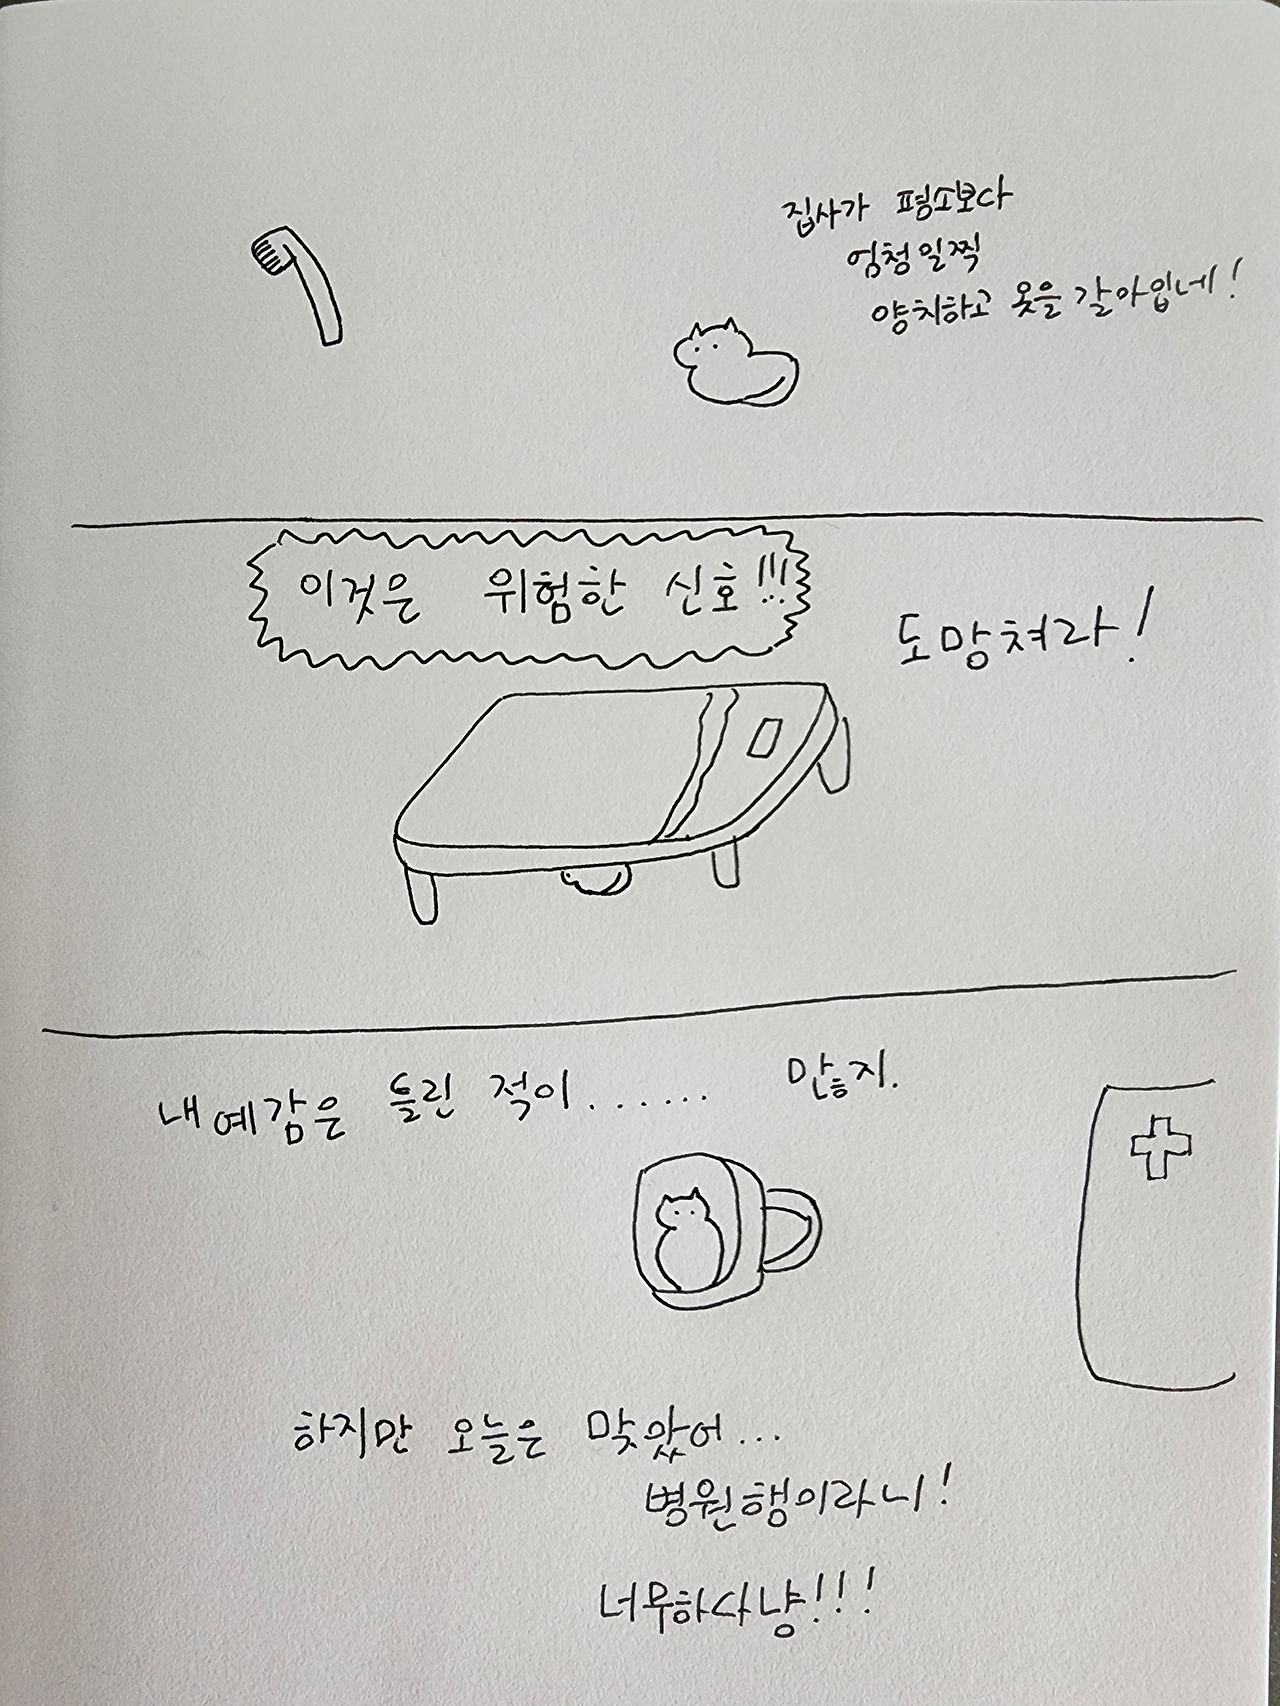 집사가 평소보다
엄청 일찍
양치하고 옷을 갈아입네!
이것은 위험한 신호!!!
도망쳐라!
내 예감은 틀린 적이...... 많지.
하지만 오늘은 맞았어...
병원행이라니!
너무하다냥!!!